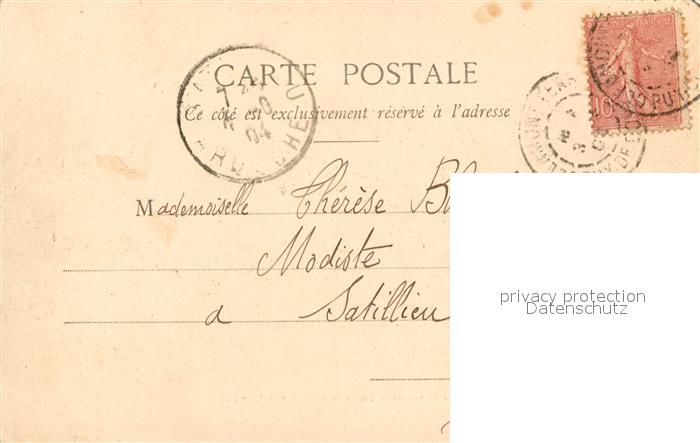 CARTE POSTALE
Ce côté est exclusivement réservé à l'adresse
Mademoiselle Thérèse
Modiste
a Satillieu
privacy protection
Datenschutz
10